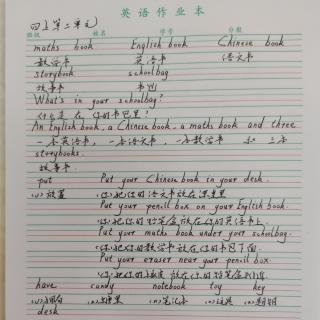 英语作业本
四上第二单元
班级 姓名 学号 分数
maths book English book Chinese book
数学书 英语书 语文书
storybook schoolbag
故事书 书包
What's in your schoolbag?
什么是在 你的书包里?
An English book, a Chinese book, a maths book and three
一本英语书, 一本语文书, 一本数学书 和 三本
storybooks.
故事书.
put Put your Chinese book in your desk.
(v.) 放置 你把你的语文书放在课桌里
Put your pencil box on your English book.
你把你的铅笔盒放在你的英语书上.
Put your maths book under your schoolbag.
你把你的数学书放在你的书包下面.
Put your eraser near your pencil box.
你把你的橡皮放在你的铅笔盒附近.
have candy notebook toy key
(v.)拥有 (n.)糖果 (n.)笔记本 (n.)玩具 (n.)钥匙
desk